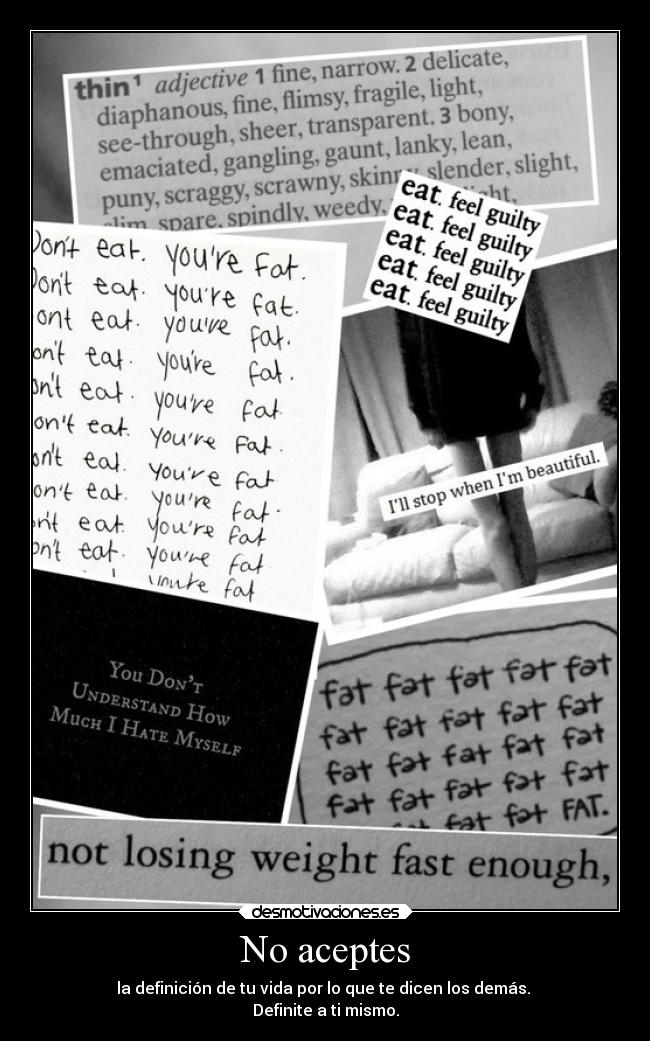 thin¹ adjective 1 fine, narrow. 2 delicate,
diaphanous, fine, flimsy, fragile, light,
see-through, sheer, transparent. 3 bony,
emaciated, gangling, gaunt, lanky, lean,
puny, scraggy, scrawny, skinny, slender, slight,
slim, spare, spindly, weedy,
eat. feel guilty
eat. feel guilty
eat. feel guilty
eat. feel guilty
eat. feel guilty
Don't eat. you're fat.
Don't eat. you're fat.
ont eat. you're fat.
on't eat. you're fat.
on't eat. you're fat
on't eat. you're fat.
on't eat. you're fat
on't eat. you're fat.
on't eat. you're fat
on't eat. you're fat
fat
I'll stop when I'm beautiful.
You Don't
Understand How
Much I Hate Myself
fat fat fat fat fat
fat fat fat fat fat
fat fat fat fat fat
fat fat fat fat fat
fat fat FAT.
not losing weight fast enough,
desmotivaciones.es
No aceptes
la definición de tu vida por lo que te dicen los demás.
Definite a ti mismo.